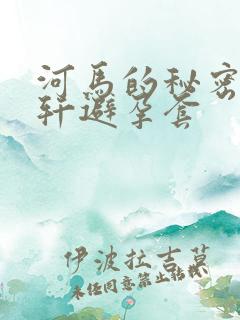 河马的秘密
轩避孕套
伊波拉吉莫
未经同意禁止转载